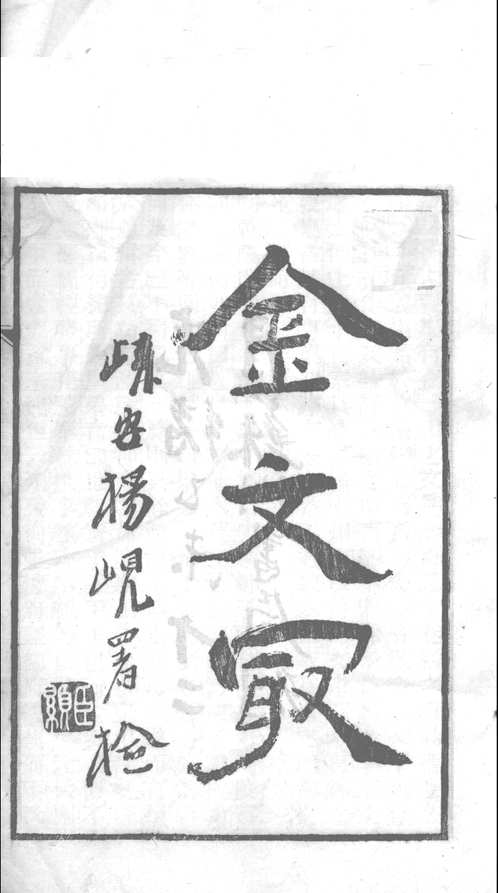 金文冣
歸安楊峴署檢